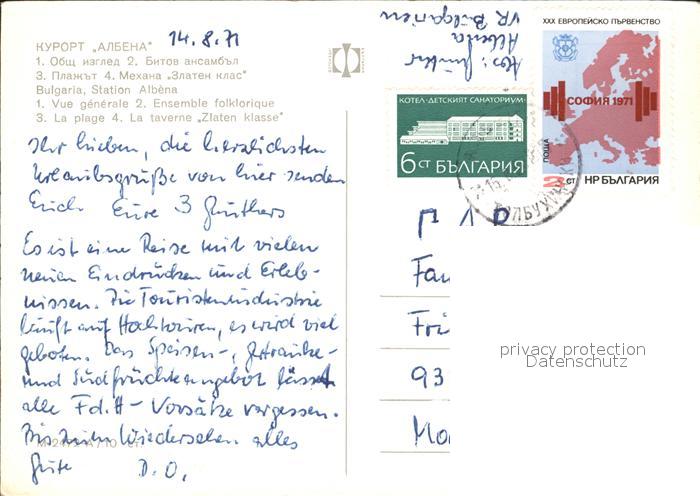 КУРОРТ „АЛБЕНА"
14.8.71
1. Общ изглед 2. Битов ансамбъл
3. Плажът 4. Механа „Златен клас"
Bulgaria, Station Albèna
1. Vue générale 2. Ensemble folklorique
3. La plage 4. La taverne „Zlaten klasse"
Ihr lieben, die herzlichsten
Urlaubsgrüße von hier senden
Euch Eure 3 Günthers
Es ist eine Reise mit vielen
neuen Eindrücken und Erleb-
nissen. Die Touristenindustrie
läuft auf Hochtouren, es wird viel
geboten. Das Speisen-, Getränke-
und Südfrüchteangebot lässt
alle F.d.H-Vorsätze vergessen.
Bis zum Wiedersehen alles
Gute D. O.
Abs: Günther
Albena
VR Bulgarien
КОТЕЛ-ДЕТСКИЯТ САНАТОРИУМ
6 СТ БЪЛГАРИЯ
XXX ЕВРОПЕЙСКО ПЪРВЕНСТВО
СОФИЯ 1971
ПОЩА
2 СТ НР БЪЛГАРИЯ
ТОЛБУХИН
Fam
Fri
93
privacy protection
Datenschutz